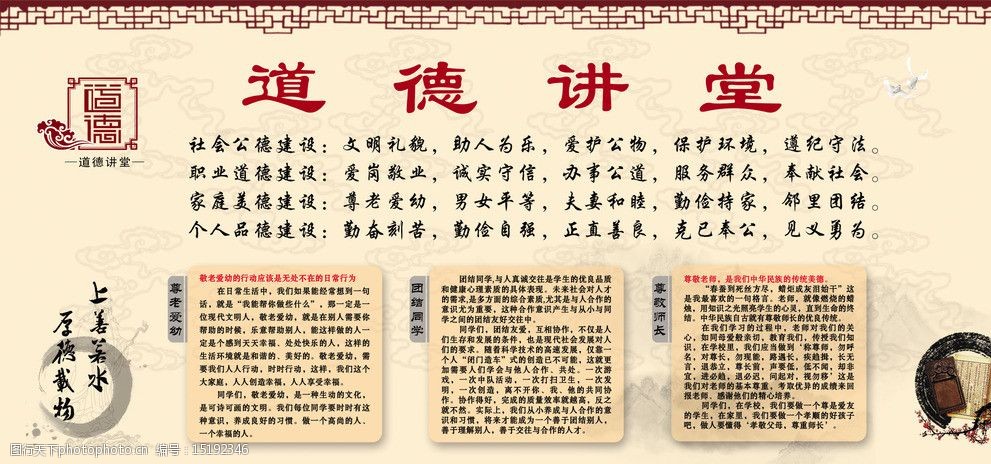 道德讲堂
道德
道德讲堂
社会公德建设：文明礼貌，助人为乐，爱护公物，保护环境，遵纪守法。
职业道德建设：爱岗敬业，诚实守信，办事公道，服务群众，奉献社会。
家庭美德建设：尊老爱幼，男女平等，夫妻和睦，勤俭持家，邻里团结。
个人品德建设：勤奋刻苦，勤俭自强，正直善良，克己奉公，见义勇为。
上善若水
厚德载物
尊老爱幼
敬老爱幼的行动应该是无处不在的日常行为
在日常生活中，我们如果能经常想到一句
话，就是“我能帮你做些什么”，那一定是一
位现代文明人，敬老爱幼，就是在别人需要你
帮助的时候，乐意帮助别人，能这样做的人一
定是个感到天天幸福、处处快乐的人，这样的
生活环境就是和谐的、美好的。敬老爱幼，需
要我们人人行动，时时行动，这样，我们这个
大家庭，人人创造幸福，人人享受幸福。
同学们，敬老爱幼，是一种生动的文化，
是可诗可画的文明。我们每位同学要时时有这
种意识，养成良好的习惯。做一个高尚的人、
一个幸福的人。
团结同学
团结同学，与人真诚交往是学生的优良品质
和健康心理素质的具体表现。未来社会对人才
的需求，是多方面的综合素质，尤其是与人合作的
意识尤为重要，这种合作意识产生与从小与同
学之间的团结友好交往中。
同学们，团结友爱，互相协作，不仅是人
们生存和发展的条件，也是现代社会发展对人
们的要求。随着科学技术的高速发展，仅靠一
个人“闭门造车”式的创造已不可能，这就更
加需要人们学会与他人合作、共处。一次游
戏，一次中队活动，一次打扫卫生，一次发
明，一次创造，离不开你、我、他的共同协
作。协作得好，完成的质量效率就越高，反之
就不然。实际上，我们从小养成与人合作的意
识和习惯，将来才能成为一个善于团结别人，
善于理解别人，善于交往与合作的人才。
尊敬师长
尊敬老师，是我们中华民族的传统美德。
“春蚕到死丝方尽，蜡炬成灰泪始干”这
是我最喜欢的一句格言。老师，就像燃烧的蜡
烛，用知识之光照亮学生的心灵，直到生命的终
结。中华民族自古就有尊敬师长的优良传统。
在我们学习的过程中，老师对我们的关
心，如同母爱般亲切，教育我们，传授我们知
识，在学校里，我们应当做到‘称尊师，勿呼
名，对尊长，勿现能，路遇长，疾趋揖，长无
言，退恭立，尊长前，声要低，低不闻，却非
宜，进必趋，退必迟，问起对，视勿移’这是
我们对老师的基本尊重，考取优异的成绩来回
报老师，感谢他们的精心培养。
同学们，在学校，我们要做一个尊是爱友
的学生，在家里，我们要做一个孝顺的好孩子
吧，做人要懂得‘孝敬父母，尊重师长’。
图行天下 photophoto.cn 编号：15192346